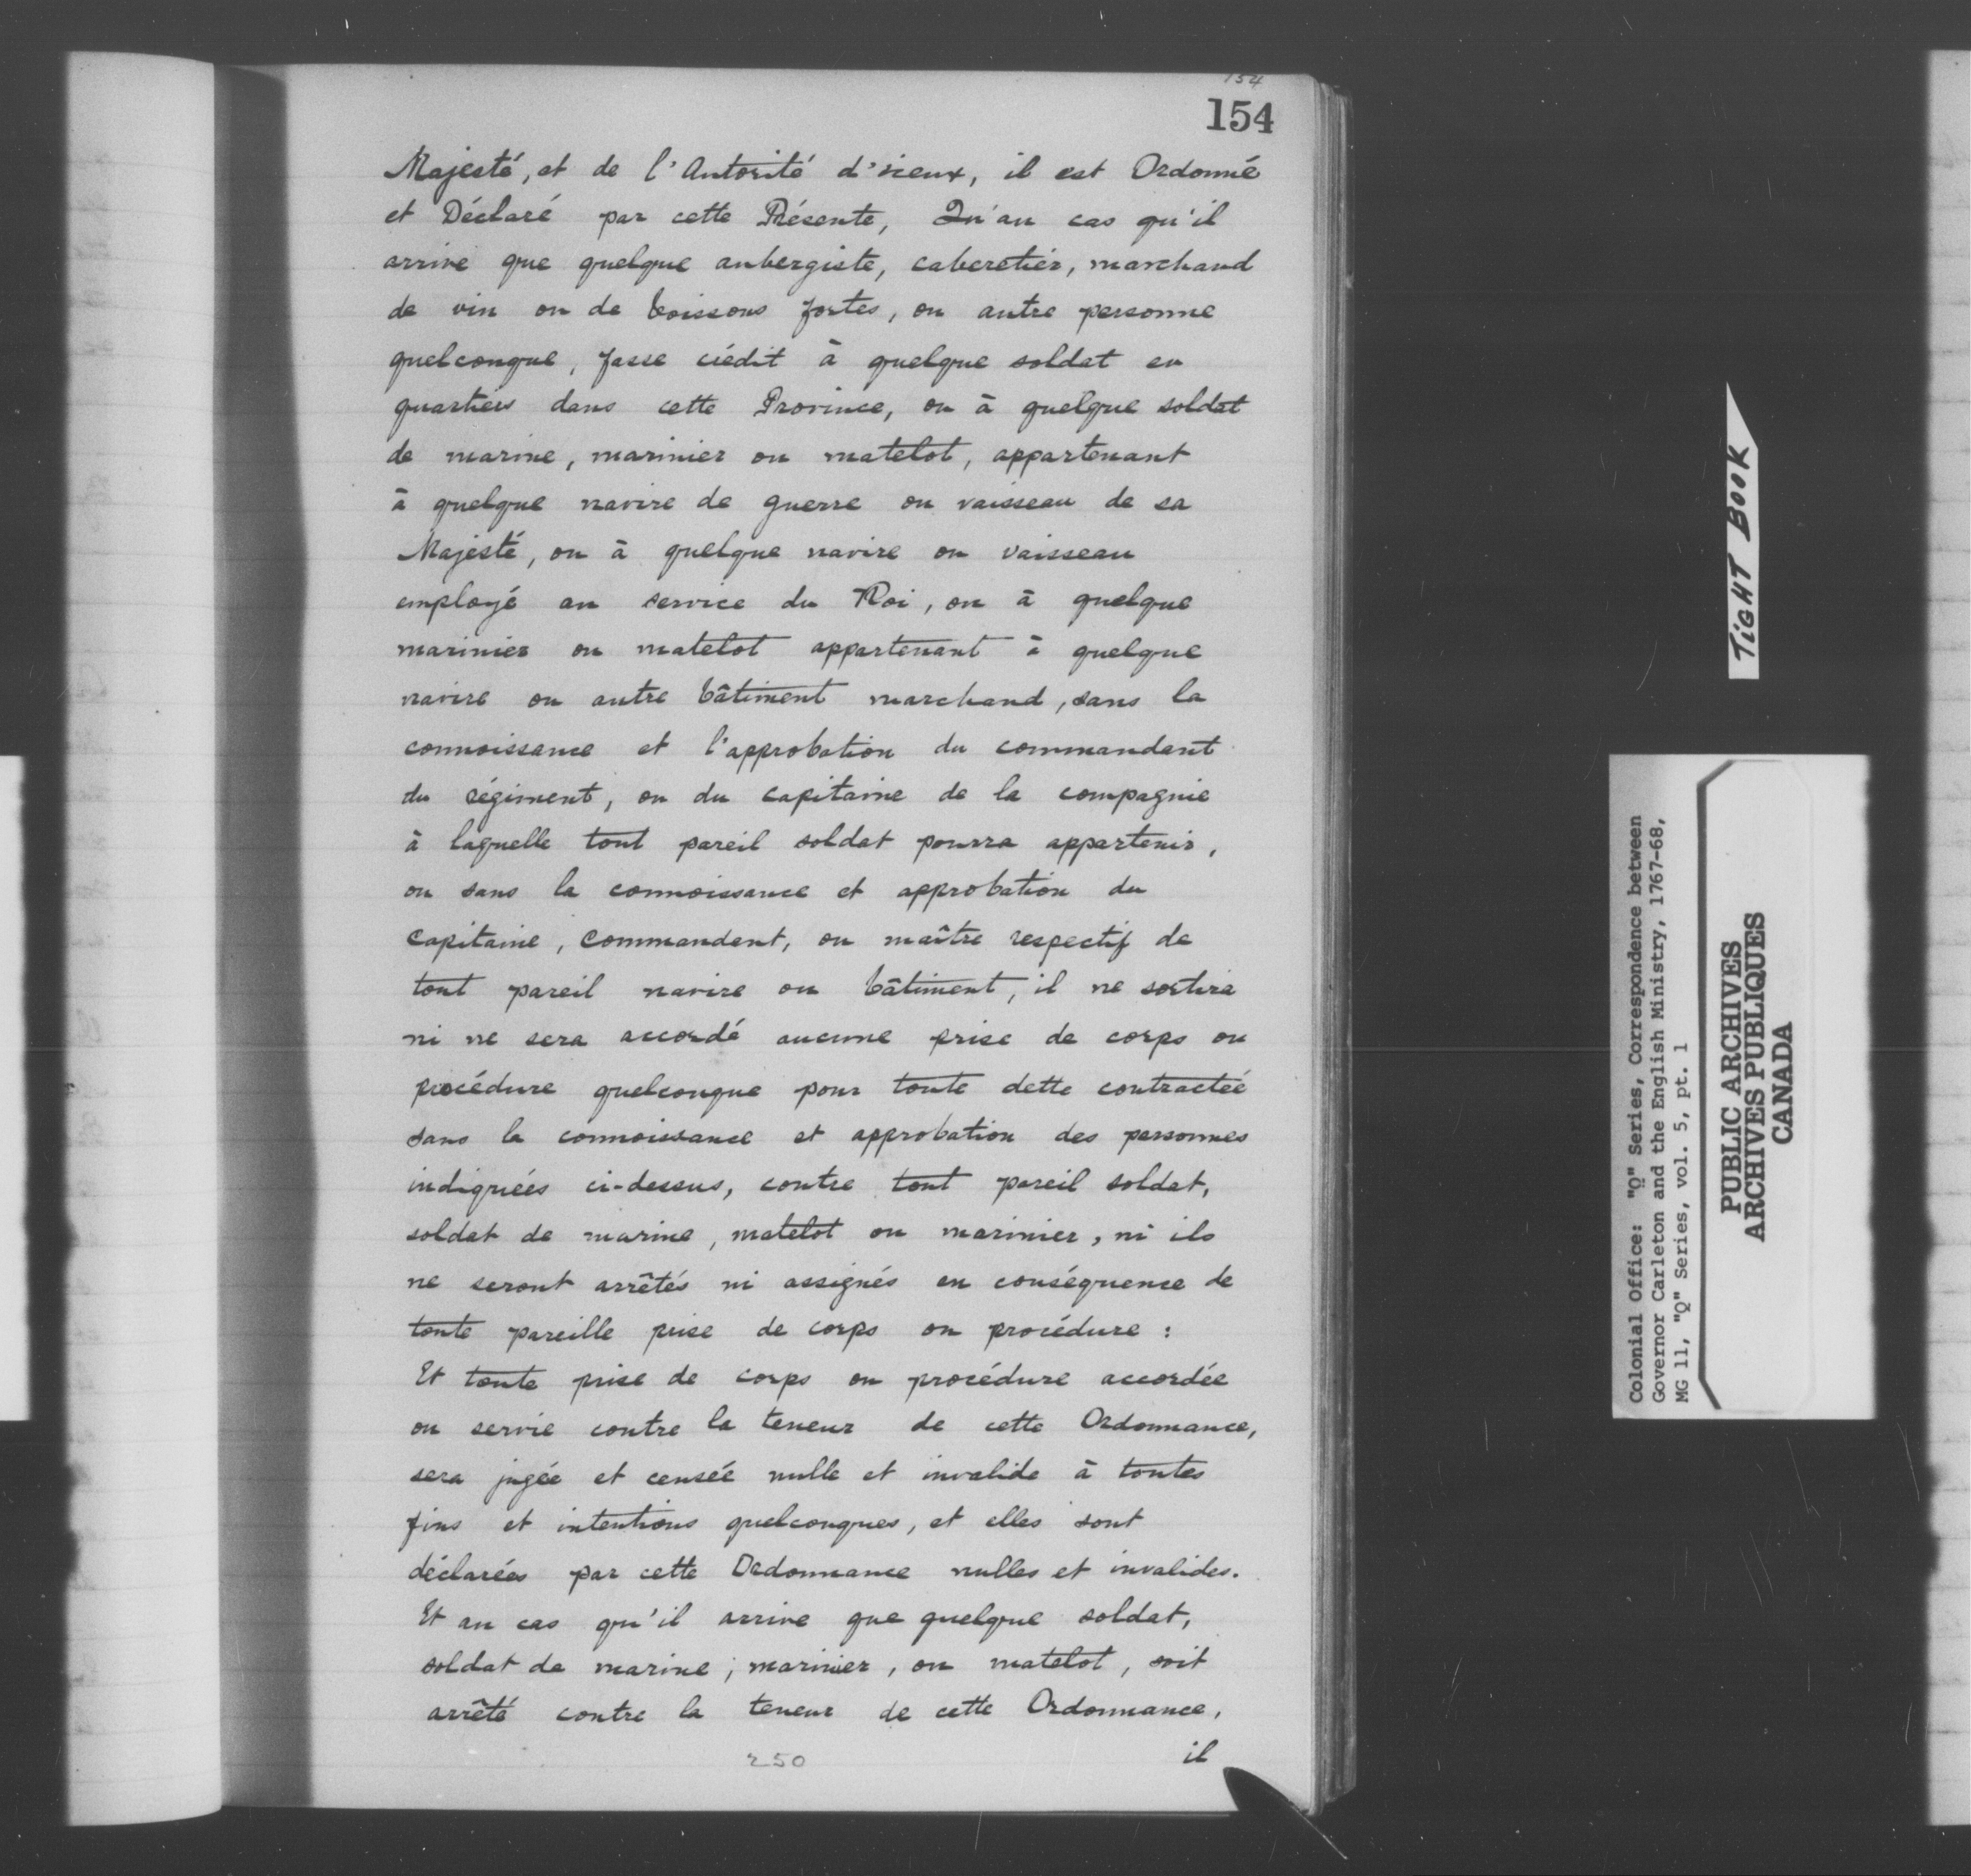 154
154
Majesté, et de l'Autorité d'iceux, il est Ordonné
et Déclaré par cette Présente, Qu'au cas qu'il
arrive que quelque aubergiste, caberetier, marchand
de vin ou de boissons fortes, ou autre personne
quelconque, fasse crédit à quelque soldat en
quartiers dans cette Province, ou à quelque soldat
de marine, marinier ou matelot, appartenant
à quelque navire de guerre ou vaisseau de sa
Majesté, ou à quelque navire ou vaisseau
employé au service du Roi, ou à quelque
marinier ou matelot appartenant à quelque
navire ou autre bâtiment marchand, sans la
connoissance et l'approbation du commandant
du régiment, ou du capitaine de la compagnie
à laquelle tout pareil soldat pourra appartenir,
ou sans la connoissance et approbation du
Capitaine, Commandant, ou maître respectif de
tout pareil navire ou bâtiment, il ne sortira
ni ne sera accordé aucune prise de corps ou
procédure quelconque pour toute dette contractée
sans la connoissance et approbation des personnes
indiquées ci-dessus, contre tout pareil soldat,
soldat de marine, matelot ou marinier, ni ils
ne seront arrêtés ni assignés en conséquence de
toute pareille prise de corps ou procédure :
Et toute prise de corps ou procédure accordée
ou servie contre la teneur de cette Ordonnance,
sera jugée et censée nulle et invalide à toutes
fins et intentions quelconques, et elles sont
déclarées par cette Ordonnance nulles et invalides.
Et au cas qu'il arrive que quelque soldat,
soldat de marine, marinier, ou matelot, soit
arrêté contre la teneur de cette Ordonnance,
il
250
TIGHT BOOK
Colonial Office: "Q" Series, Correspondence between
Governor Carleton and the English Ministry, 1767-68,
MG 11, "Q" Series, vol. 5, pt. 1
PUBLIC ARCHIVES
ARCHIVES PUBLIQUES
CANADA